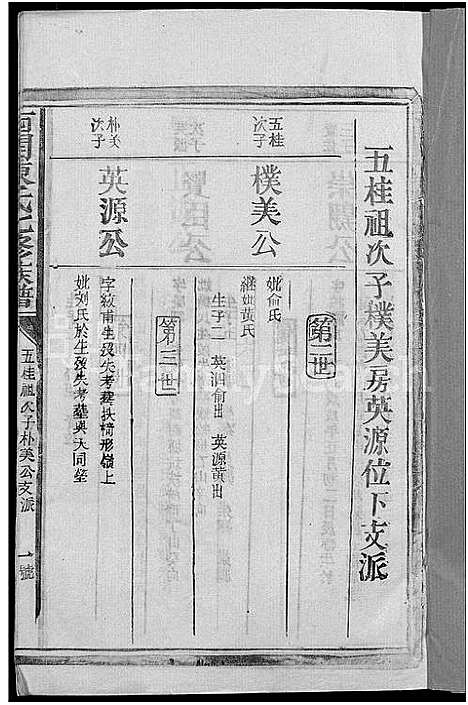 五桂祖次子樸美房英源位下支派
第二世
五桂
次子
樸美公
妣俞氏
繼妣黃氏
生子二 英泗俞出 英源黃出
第三世
朴美
次子
英源公
字紋甫生歿失考葬扶槽形嶺上
妣刘氏於生歿失考葬與夫同塋
五桂祖次子朴美公支派
一號